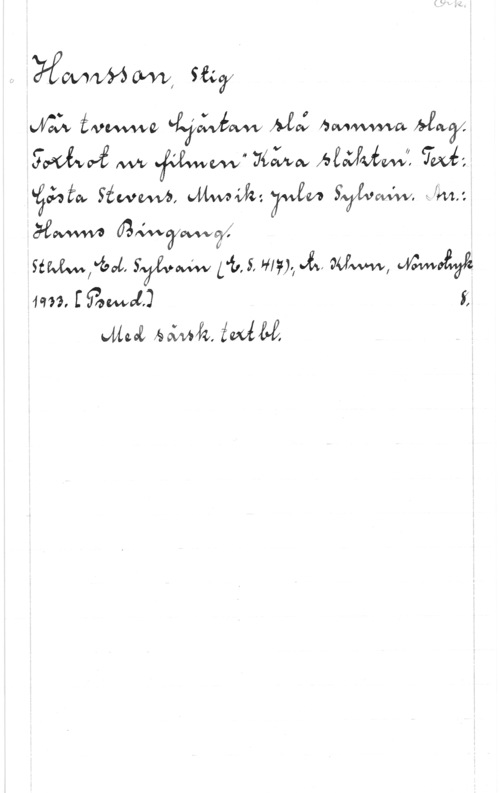 Ork.
Hansson, Stig
När tvenne hjärtan slå samma slag.
Foxtrot ur filmen "Kära släkten". Text:
Gösta Stevens. Musik: Jules Sylvain. Arr.:
Hanns Bingang.
Sthlm, Ed. Sylvain (E. S. 417); tr. Khvn, Nornotryk
1933. [Pseud.] 8.
Med särsk. textbl.